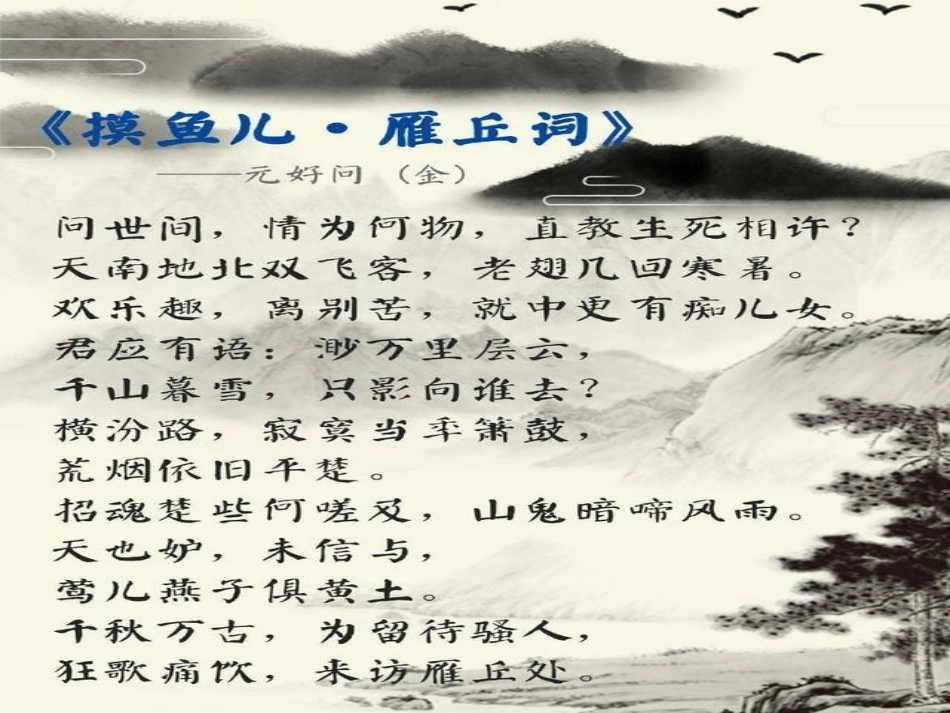 《摸鱼儿·雁丘词》
——元好问 （金）
问世间，情为何物，直教生死相许？
天南地北双飞客，老翅几回寒暑。
欢乐趣，离别苦，就中更有痴儿女。
君应有语：渺万里层云，
千山暮雪，只影向谁去？
横汾路，寂寞当年箫鼓，
荒烟依旧平楚。
招魂楚些何嗟及，山鬼暗啼风雨。
天也妒，未信与，
莺儿燕子俱黄土。
千秋万古，为留待骚人，
狂歌痛饮，来访雁丘处。